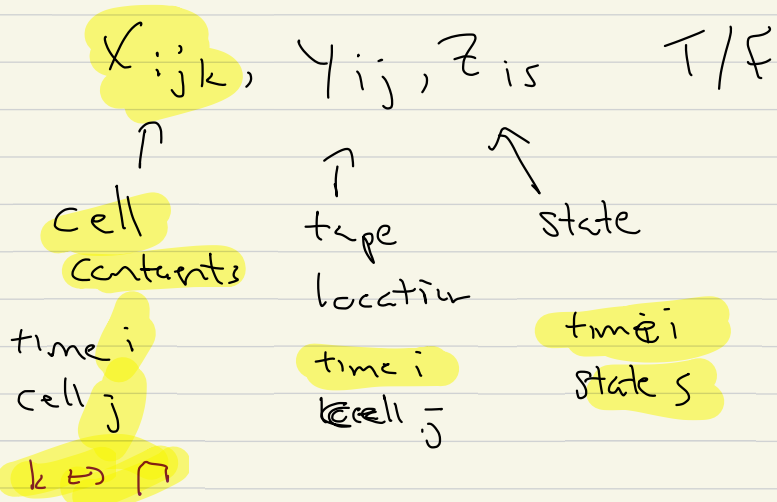 X ijk, Y ij, Z is T/F
cell
contents
time i
cell j
k ↔ Γ
tape
location
time i
cell j
state
time i
state s